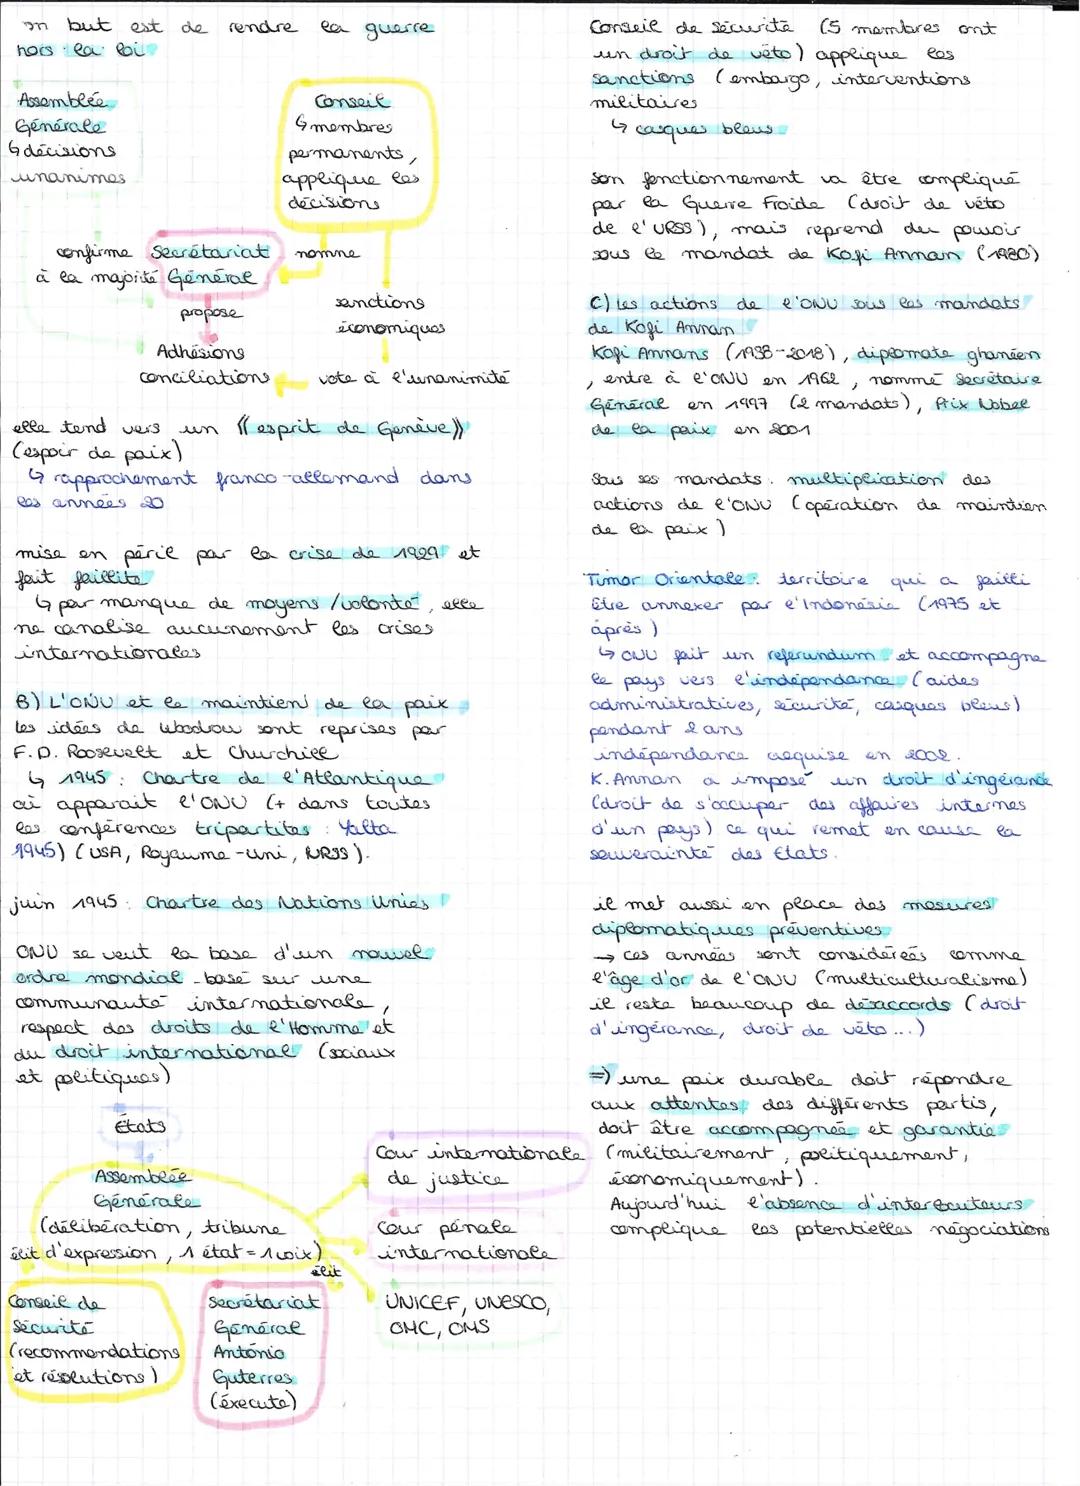 on but est de rendre la guerre
hors la loi
Assemblée
Générale
↳ décisions
unanimes
Conseil
↳ membres
permanents,
applique les
décisions
confirme
à la majorité
Secrétariat
Général
nomme
propose
sanctions
économiques
Adhésions
conciliations
vote à l'unanimité
elle tend vers un «esprit de Genève»
(espoir de paix)
↳ rapprochement franco-allemand dans
les années 20
mise en péril par la crise de 1929 et
fait faillite
↳ par manque de moyens/volonté, elle
ne canalise aucunement les crises
internationales
B) L'ONU et le maintien de la paix
les idées de Woodrow sont reprises par
F.D. Roosevelt et Churchill
↳ 1945 : Chartre de l'Atlantique
où apparait l'ONU (+ dans toutes
les conférences tripartites : Yalta
1945) (USA, Royaume-Uni, URSS).
juin 1945 : Chartre des Nations Unies
ONU se veut la base d'un nouvel
ordre mondial basé sur une
communauté internationale,
respect des droits de l'Homme et
du droit international (sociaux
et politiques)
États
Assemblée
Générale
(délibération, tribune
d'expression, 1 état = 1 voix)
élit
élit
Cour internationale
de justice
Cour pénale
internationale
UNICEF, UNESCO,
OMC, OMS
Conseil de
sécurité
(recommendations
et résolutions)
Secrétariat
Général
António
Guterres
(éxecute)
Conseil de sécurité (5 membres ont
un droit de véto) applique les
sanctions (embargo, interventions
militaires
↳ casques bleus
son fonctionnement va être compliqué
par la Guerre Froide (droit de véto
de l'URSS), mais reprend du pouvoir
sous le mandat de Kofi Annan (1980)
C) les actions de l'ONU sous les mandats
de Kofi Annan
Kofi Annans (1938-2018), diplomate ghanéen
, entre à l'ONU en 1962, nommé Secrétaire
Général en 1997 (2 mandats), Prix Nobel
de la paix en 2001
Sous ses mandats : multiplication des
actions de l'ONU (opération de maintien
de la paix)
Timor Orientale : territoire qui a failli
être annexer par l'Indonésie (1975 et
après)
↳ ONU fait un referundum et accompagne
le pays vers l'indépendance (aides
administratives, sécurité, casques bleus)
pendant 2 ans
indépendance acquise en 2002.
K. Annan a imposé un droit d'ingérance
(droit de s'occuper des affaires internes
d'un pays) ce qui remet en cause la
souverainté des Etats.
il met aussi en place des mesures
diplomatiques préventives
→ ces années sont considérées comme
l'âge d'or de l'ONU (multiculturalisme)
il reste beaucoup de désaccords (droit
d'ingérance, droit de véto...)
=> une paix durable doit répondre
aux attentes des différents partis,
doit être accompagnée et garantie
(militairement, politiquement,
économiquement).
Aujourd'hui l'absence d'interlocuteurs
complique les potentielles négociations